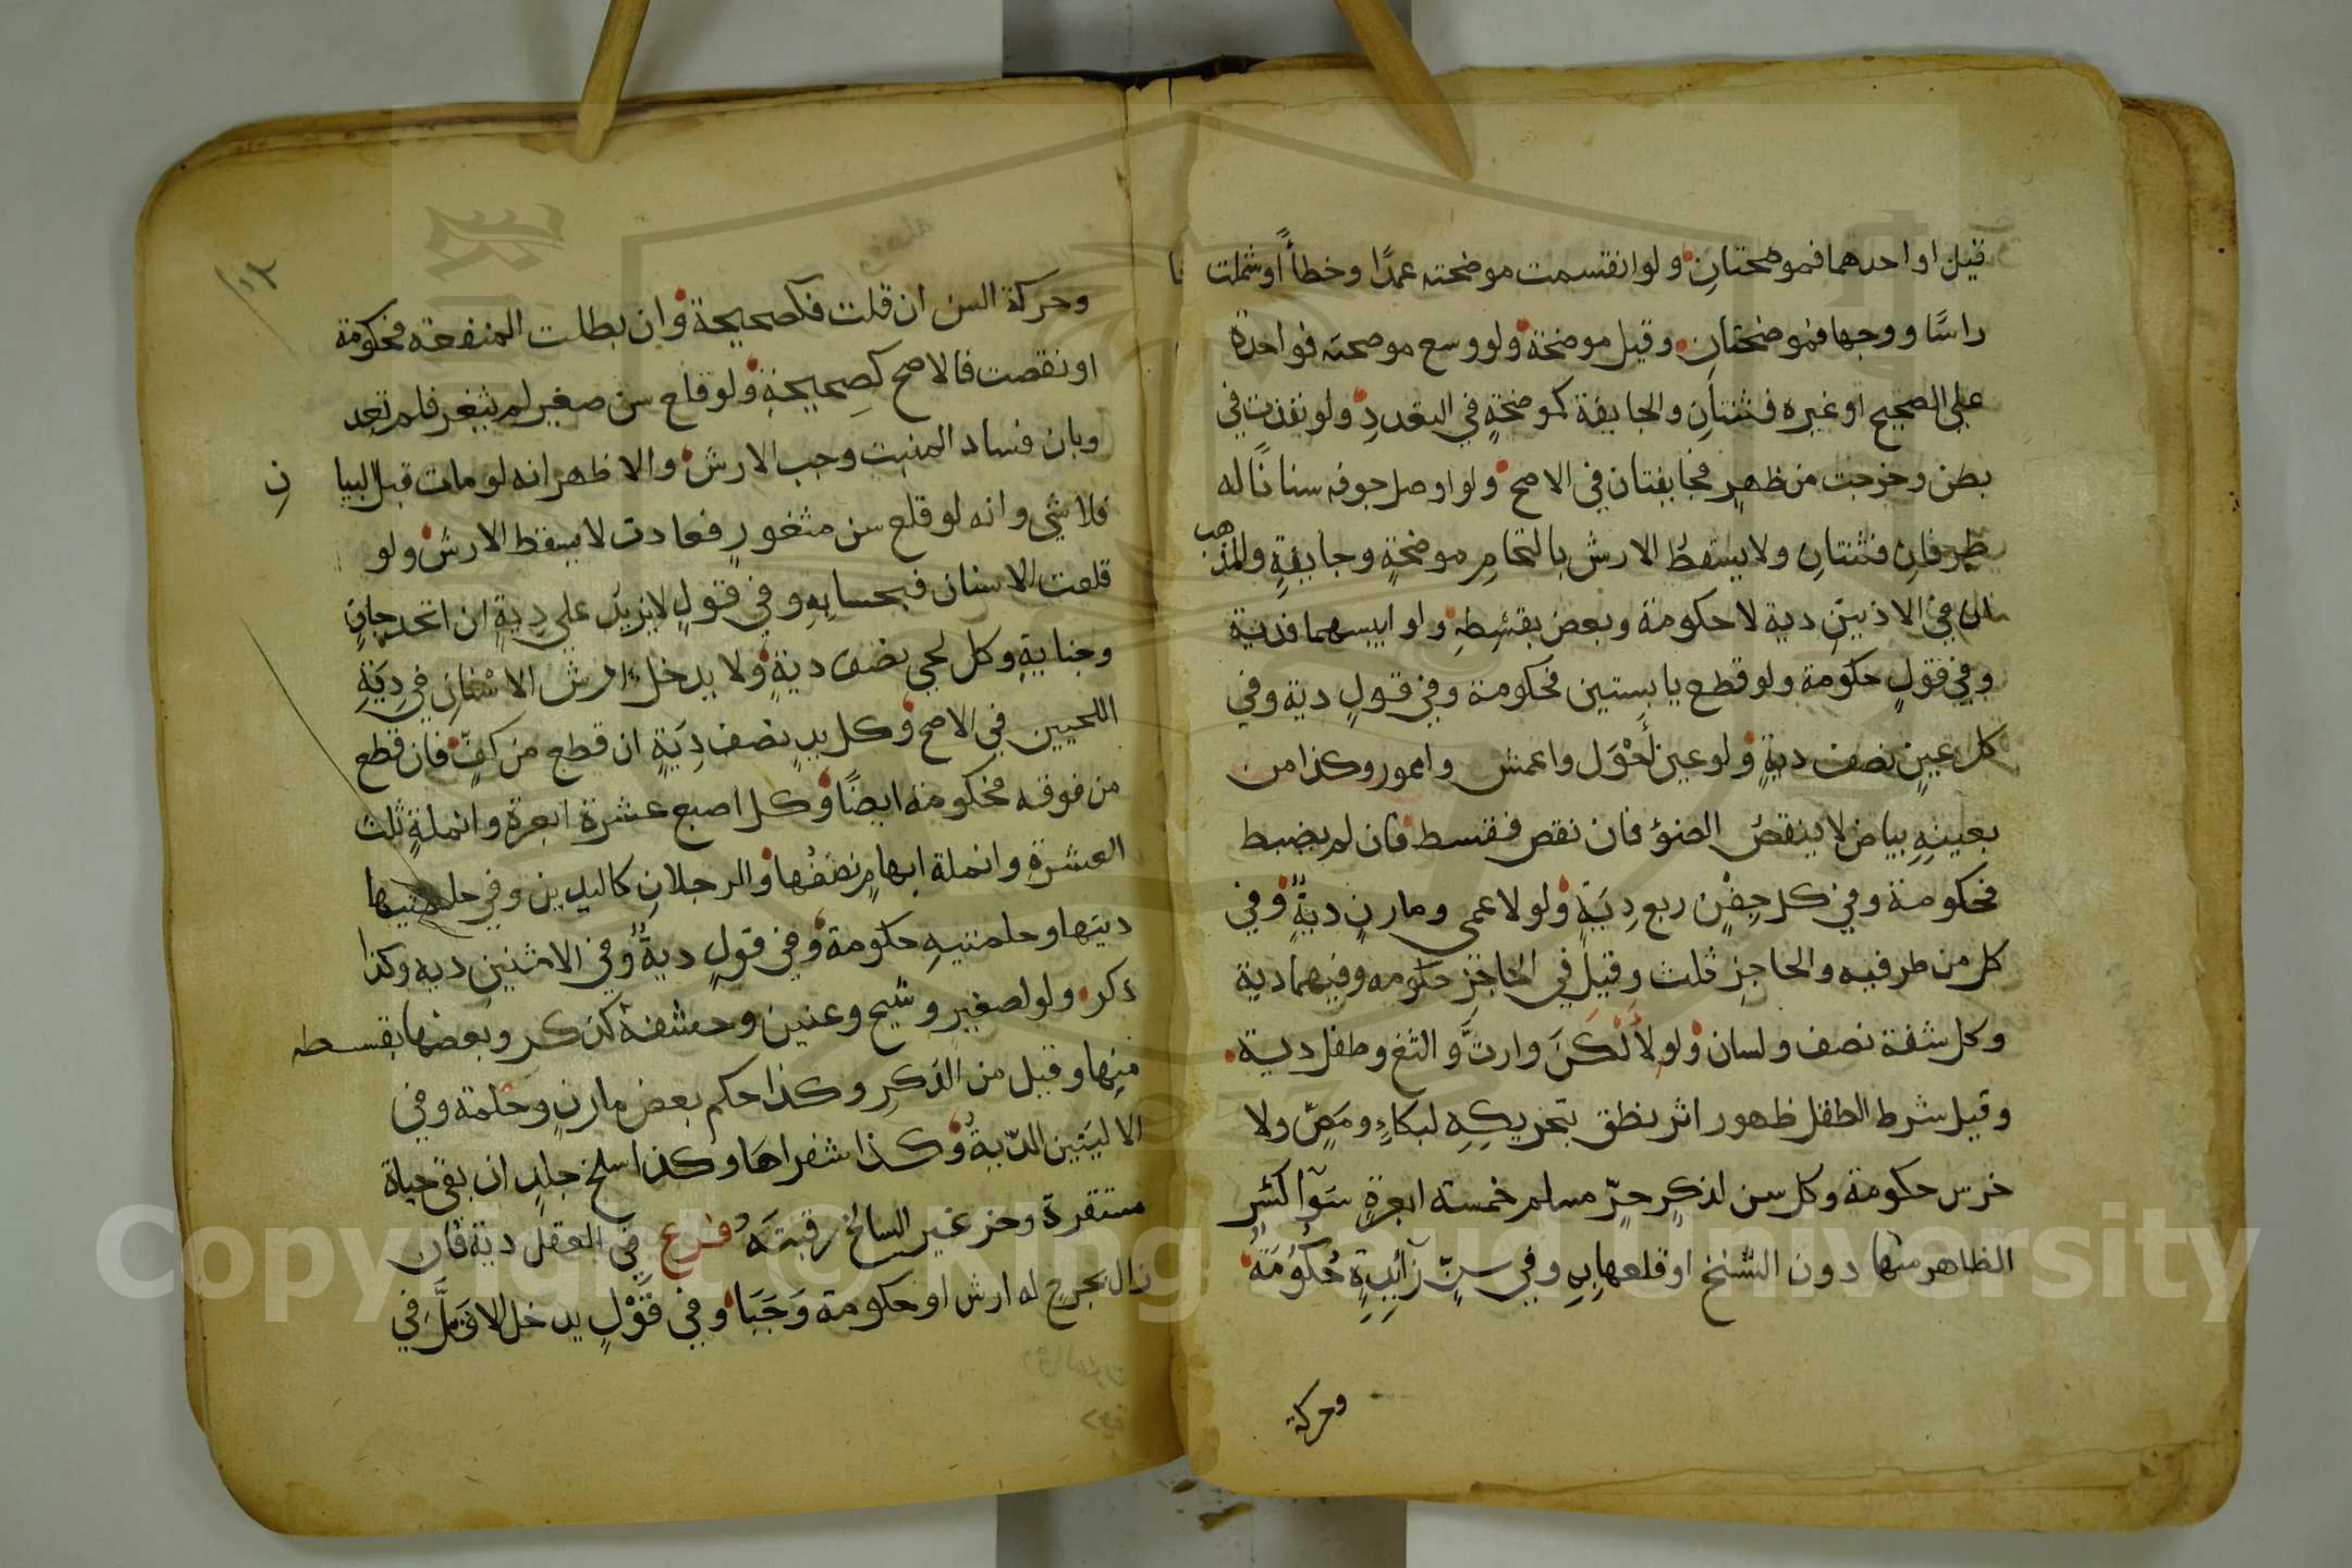 قيل او احدهما فموضحتانِ ولو انقسمت موضحته عمدًا وخطأً اوشملت
راسًا ووجها فموضحتان وقيل موضحة ولو وسع موضحته فواحدة
على الصحيح او غيره فثنتانِ والجايفة كموضحةٍ في التعددِ ولو نفذت في
بطن وخرجت من ظهرٍ فجايفتان في الاصح ولو اوصل جوفه سنانًا له
طرفانِ فثنتانِ ولا يسقطُ الارش بالتحامِ موضحةٍ وجايفةٍ والمذهب
ان في الاذنينِ دية لا حكومة وبعض بقسطِهِ ولو ايبسهما فدية
وفي قولٍ حكومة ولو قطع يابستين فحكومة وفي قولٍ دية وفي
كل عينٍ نصف ديةٍ ولو عين أحْوَل واعمش واعور وكذا من
بعينِهِ بياض لا ينقصُ الضوء فان نقص فقسط فان لم ينضبط
فحكومة وفي كل جفْنٍ ربع دِيَةٍ ولو لاعمى ومارنٍ ديةٌ وفي
كل من طرفيه والحاجزِ ثلث وقيل في الحاجزِ حكومه وفيهما دية
وكل شفة نصف ولسان ولو لألْكَنَ وارتَّ والثغ وطفل دية
وقيل شرط الطفل ظهور اثر نطق بتحريكِهِ لبكاءٍ ومَصٍّ ولا
خرس حكومة وكل سن لذكرٍ حرٍّ مسلم خمسة ابعرةٍ سَوآ اكسر
الظاهر منها دون السنخ او قلعها بِهِ وفي سنٍّ زآئِدةٍ حُكُومَةٌ
وحركة
وحركة السن ان قلت فكصحيحة وان بطلت المنفعة فحكومة
او نقصت فالاصح كصحيحةٍ ولو قلع سن صغير لم يثغر فلم تعد
وبان فساد المنبت وجب الارش والاظهر انه لو مات قبل البيا نِ
فلا شي وانه لو قلع سن مثغورٍ فعادت لا يسقط الارش ولو
قلعت الاسنان فبحسابِهِ وفي قولٍ لا يزيدُ على دِيةٍ ان اتحد جانٍ
وجنايةٍ وكل لحي نصف ديةٍ ولا يدخل ارش الاسْنانِ في دِيَةِ
اللحيين في الاصح وكل يدٍ نصف دِيَةٍ ان قطع من كفٍّ فان قطع
من فوقه فحكومة ايضًا وكل اصبع عشرة ابعرة وانملةٍ ثلث
العشرةِ وانملة ابهامٍ نصفُها والرجلانِ كاليدين وفي حلمتيها
ديتها وحلمتيهِ حكومة وفي قولٍ ديةٌ وفي الانثيينِ ديه وكذا
ذكر ولو لصغيرٍ وشيخ وعنين وحشفة كذكر وبعضها بقسطه
منها وقيل من الذكرِ وكذا حكم بعض مارنٍ وحلمة وفي
الاليتين الدّيةُ وكذا شفراها وكذا سلخ جلدٍ ان بقي حياة
مستقرة وحز غير السالخ رقبتَهُ فرع في العقل دية فان
زال بجرحٍ له ارش او حكومة وَجَبَا وفي قَوْلٍ يدخل الاقَلُّ في
Copyright © King Saud University